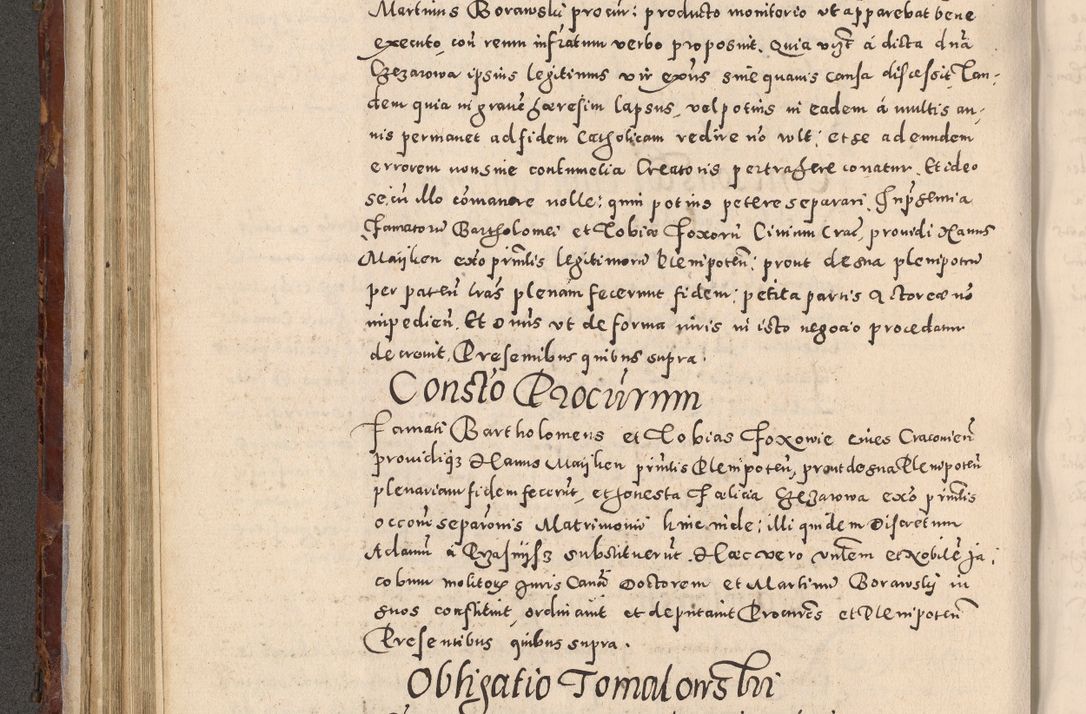 Martinus Borawski procur: producto monitorio ut apparebat bene
executo, con reum infratum verbo proposuit. Quia vizt á dicta dna
Czezarowa ipsius legitimus vir exus sine quavis causa discessit, Tan-
dem quia in gravem hæresim lapsus, vel potius in eadem á multis an-
nis permanet ad fidem Catholicam redire no vult: et se ad eundem
errorem non sine contumelia Creatoris pertrahere conatur. Et ideo
se cu illo comanere nolle: quin potius petere separari. In pñsentia
Famatoru Bartholomei et Tobiæ Foxoru Civium Crac, providi Hanus
Maijlien exo prmtis legitimoru Plenipoten: prout de sua plenipotñ
per paten lras plenam fecerunt fidem: petita partis Actoreæ no
impedien. Et Dnus ut de forma iuris in isto negocio procedatur
decrevit. Presentibus quibus supra.
Consto Procurum
Famati Bartholomeus et Tobias Foxowie cives Cracovien
providusq3 Hanus Maijlien prmtis Plenipoten, prout de sua Plenipoten
plenariam fidem fecerut, et honesta Fælicia Czezarowa exo prmtis
occone separonis Matrimonii hinc inde: illi quidem Discretum
Adamu á substituerut. Hæc vero Untem et Nobile Ja,
cobum molitory Juris Canu Doctorem et Martinu Borawskij in
suos constituit, ordinavit et deputavit Procures et Plenipoten
Presentibus quibus supra.
Obligatio Tomalowskii